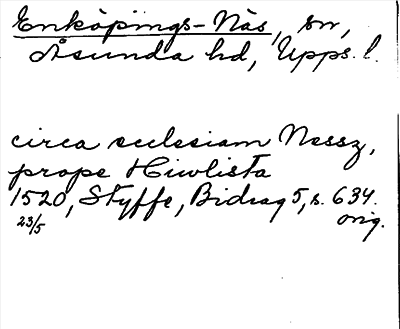 Enköpings-Näs, sn,
Åsunda hd, Upps. l.
circa ecclesiam Nessz,
prope Hiwlista
1520, Styffe, Bidrag 5, s. 634.
23/5 orig.